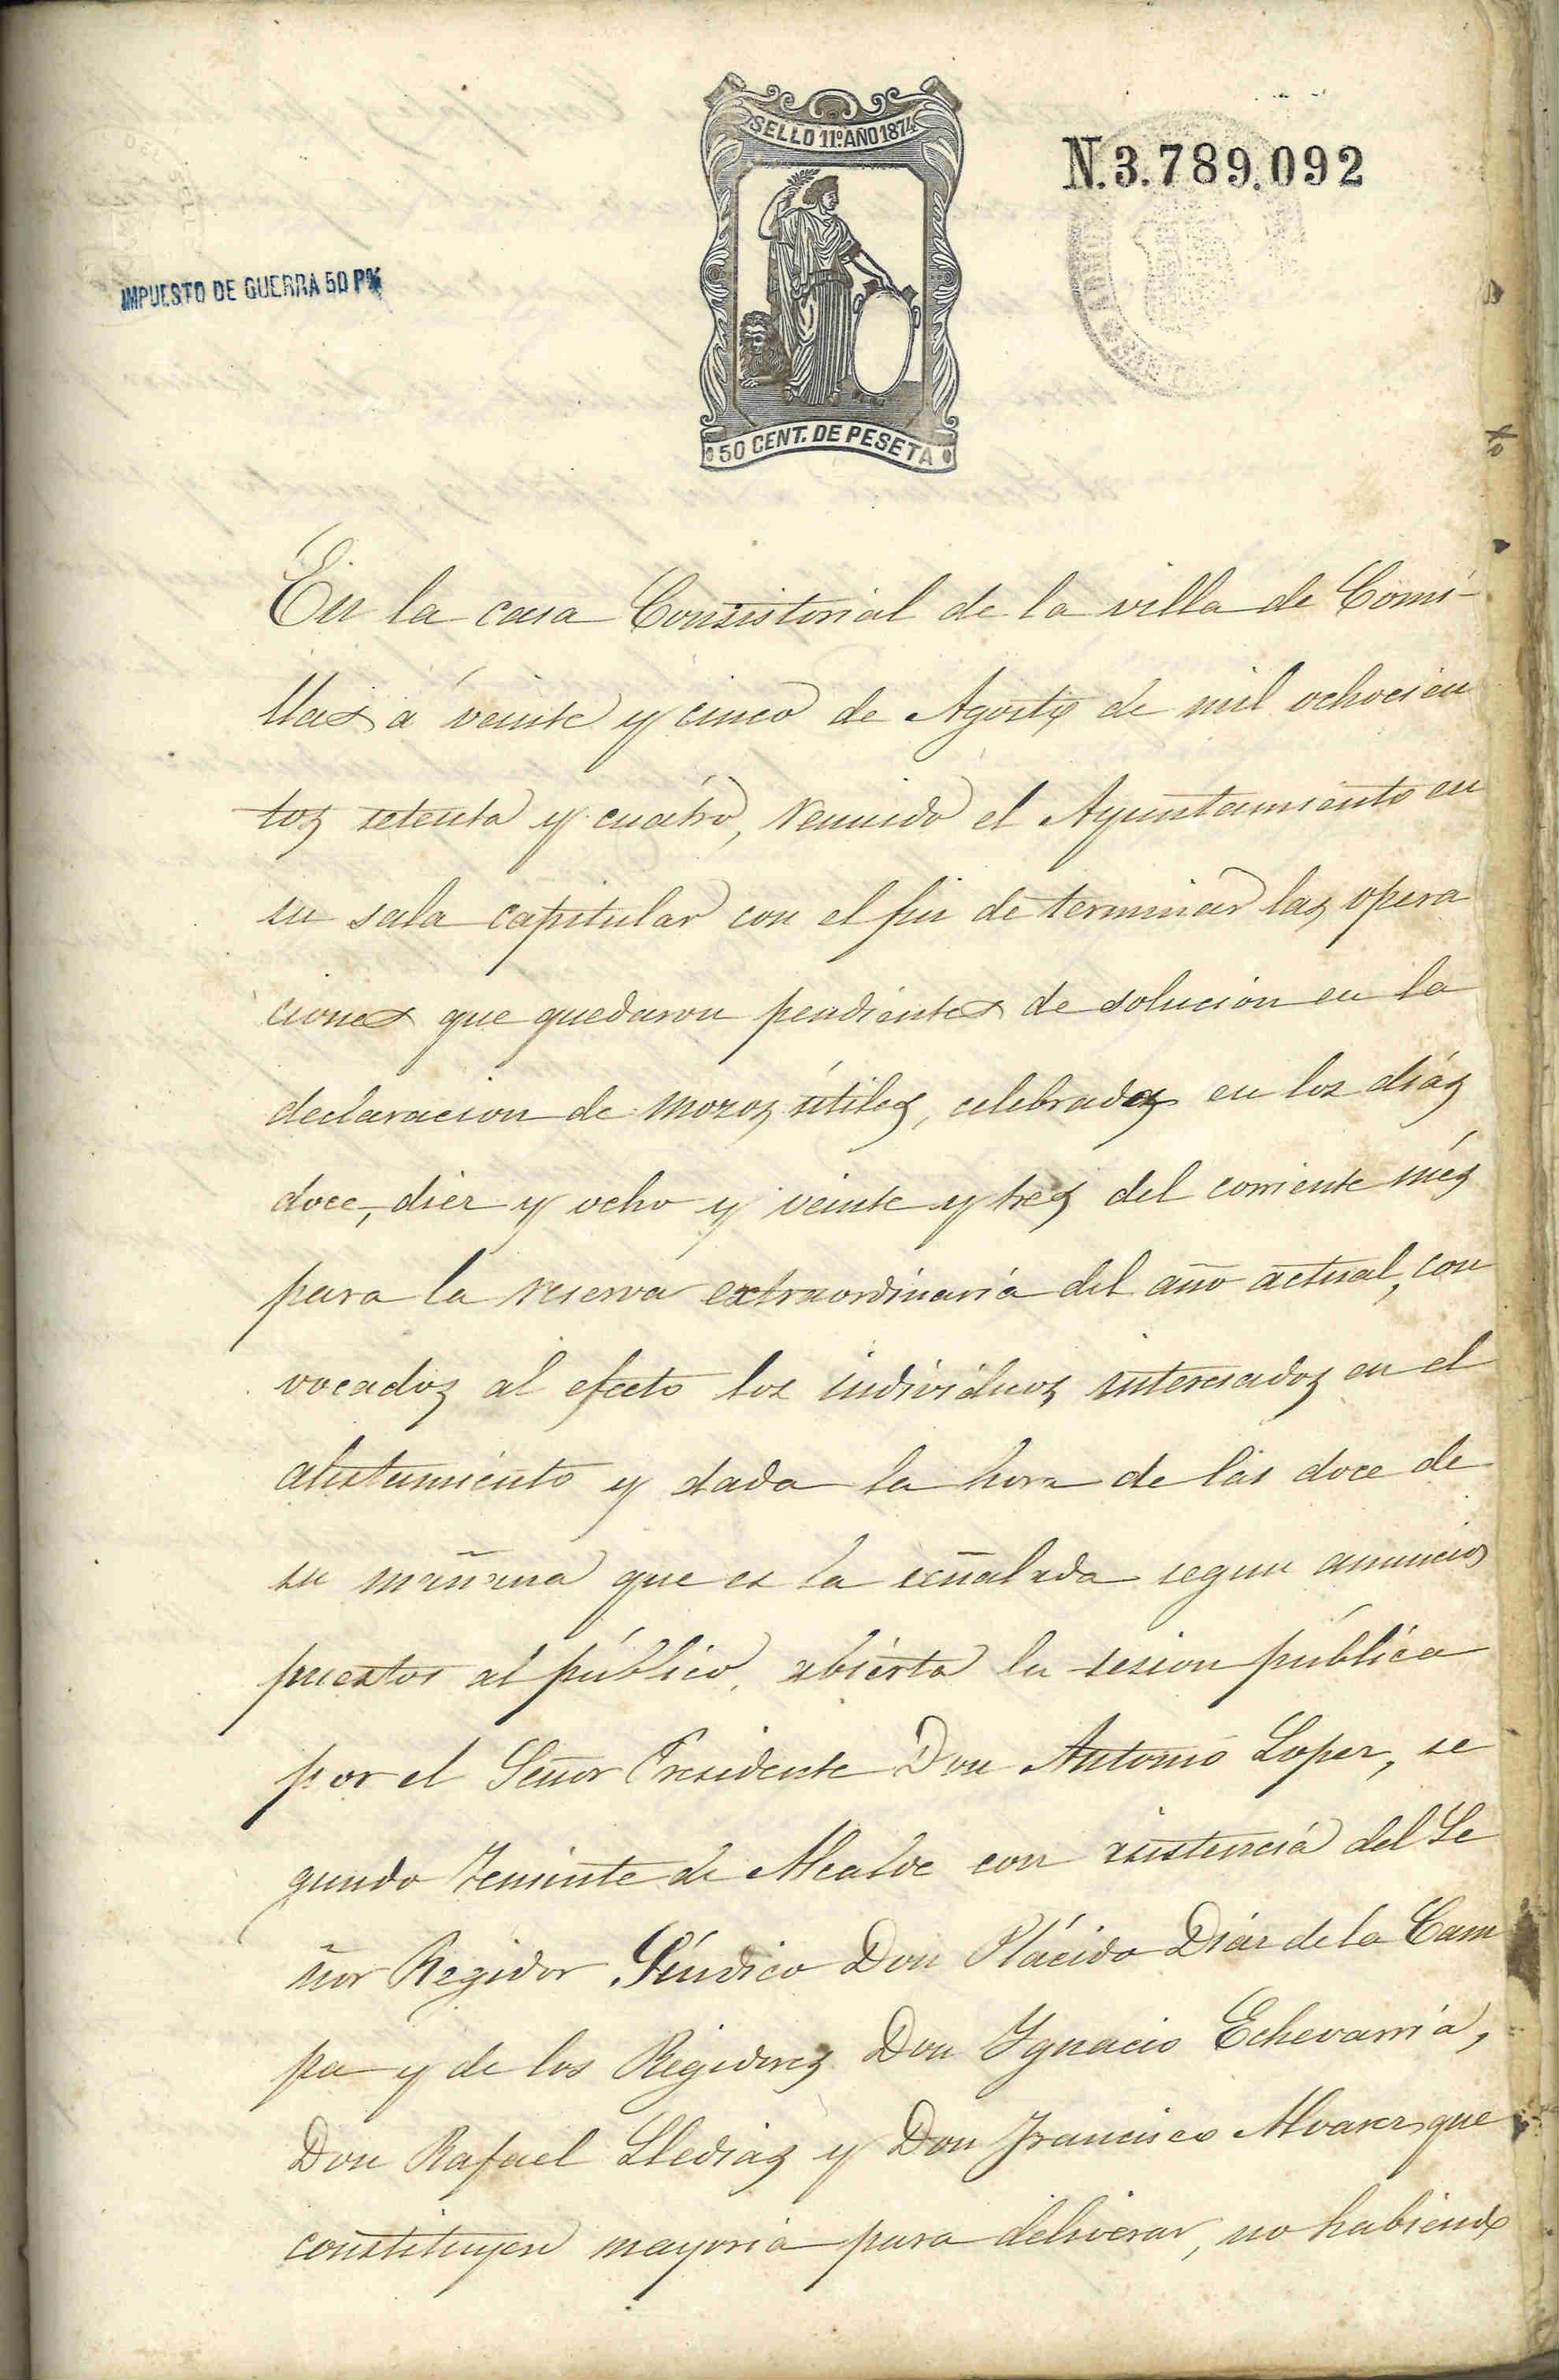 SELLO 11º AÑO 1874
N.3.789.092
IMPUESTO DE GUERRA 50 P%
50 CENT. DE PESETA
En la casa Consistorial de la villa de Comi-
llas á veinte y cinco de Agosto de mil ochocien
tos setenta y cuatro, reunido el Ayuntamiento en
su sala capitular con el fin de terminar las opera
ciones que quedaron pendientes de solucion en la
declaracion de mozos útiles, celebradas en los dias
doce, diez y ocho y veinte y tres del corriente més
para la reserva extraordinaria del año actual, con
vocados al efecto los individuos interesados en el
alistamiento y dada la hora de las doce de
su mañana que es la señalada segun anuncios
puestos al público, abierta la sesion pública
por el Señor Presidente Don Antonio Lopez, se
gundo Teniente de Alcalde con asistencia del Se
ñor Regidor Síndico Don Plácido Diaz de la Cam
pa y de los Regidores Don Ygnacio Echevarria,
Don Rafael Lledias y Don Francisco Alvarez que
constituyen mayoria para deliverar, no habiendo